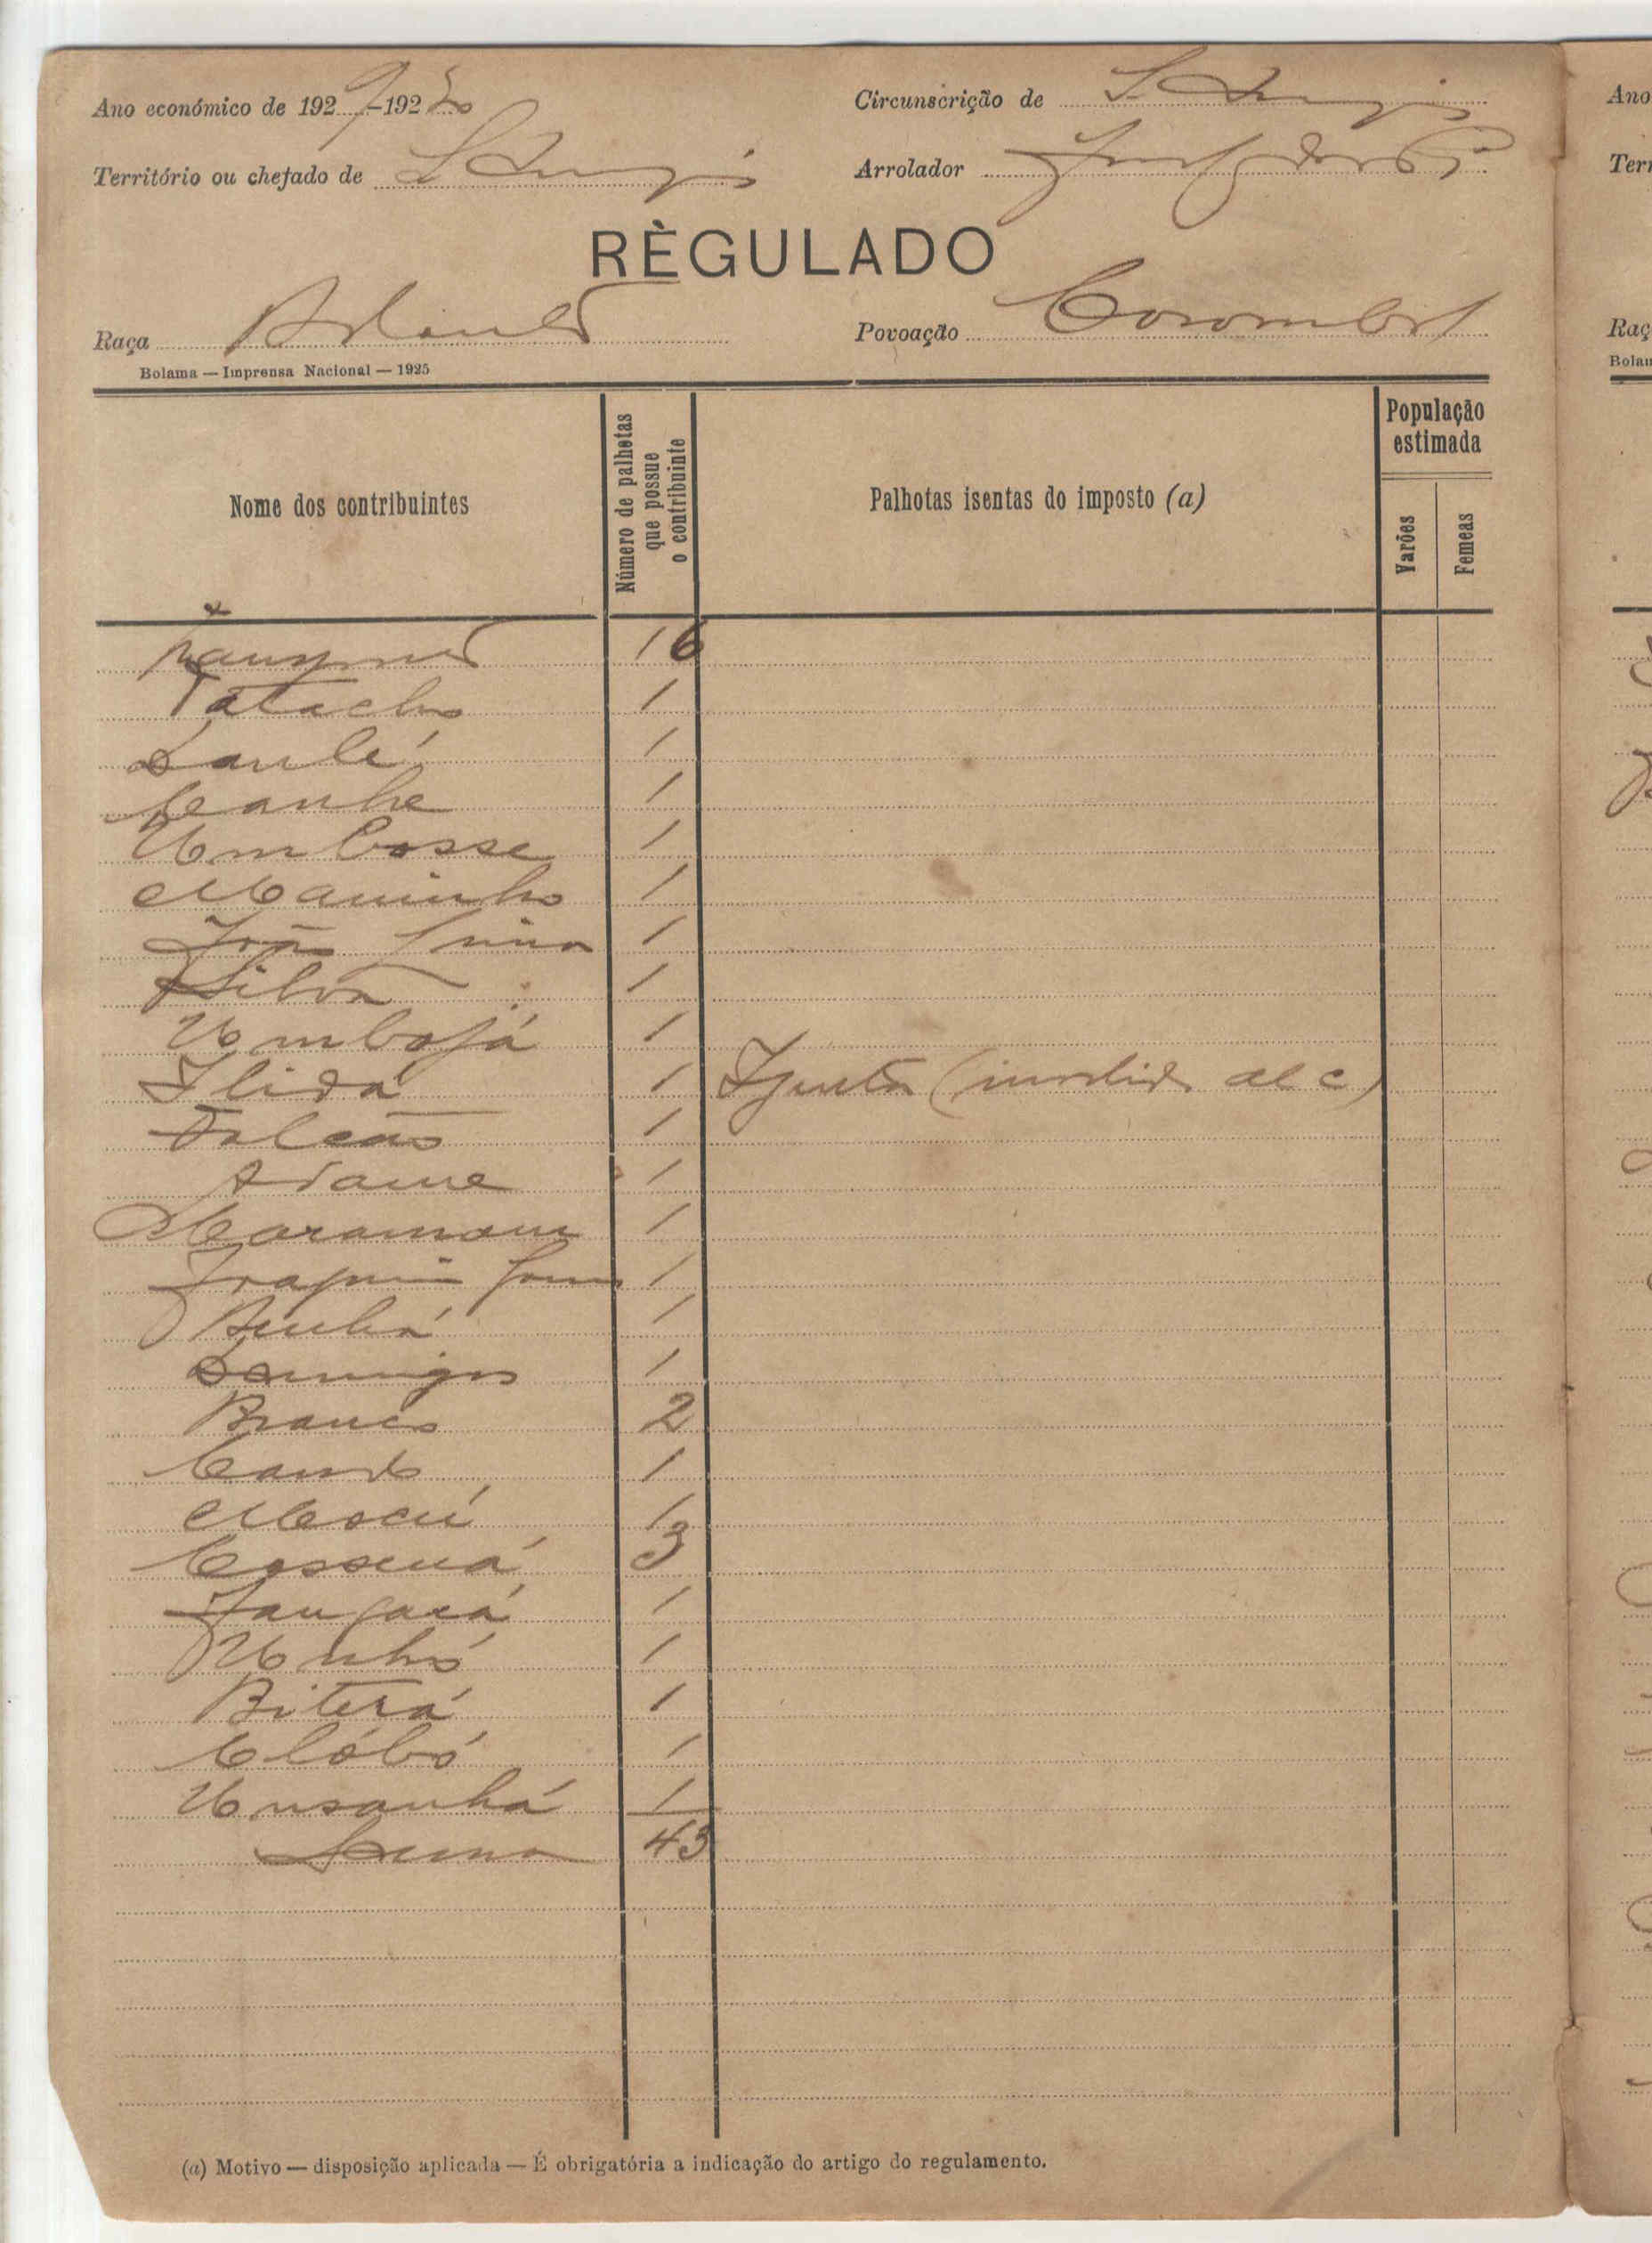 Ano económico de 1929-1930
Circunscrição de S. Domingos
Território ou chefado de S. Domingos
Arrolador
RÈGULADO
Raça
Povoação
Bolama — Imprensa Nacional — 1925
Nome dos contribuintes
Número de palhotas que possue o contribuinte
Palhotas isentas do imposto (a)
População estimada
Varões
Femeas
16
Tatacho 1
Laulé 1
Canhe 1
Umbosse 1
Maninho 1
João 1
Silva 1
Umbojá 1
Ilidá 1 Isenta (invalido al c)
Falcão 1
Adame 1
Maramam 1
Joaquim Gomes 1
Benhá 1
Domingos 1
Branco 2
Cando 1
Mocú 1
Cossená 3
1
Unhó 1
Biterá 1
Clóbó 1
Unsanhá 1
Soma 43
(a) Motivo — disposição aplicada — É obrigatória a indicação do artigo do regulamento.
Ano
Terr
Raç
Bolam